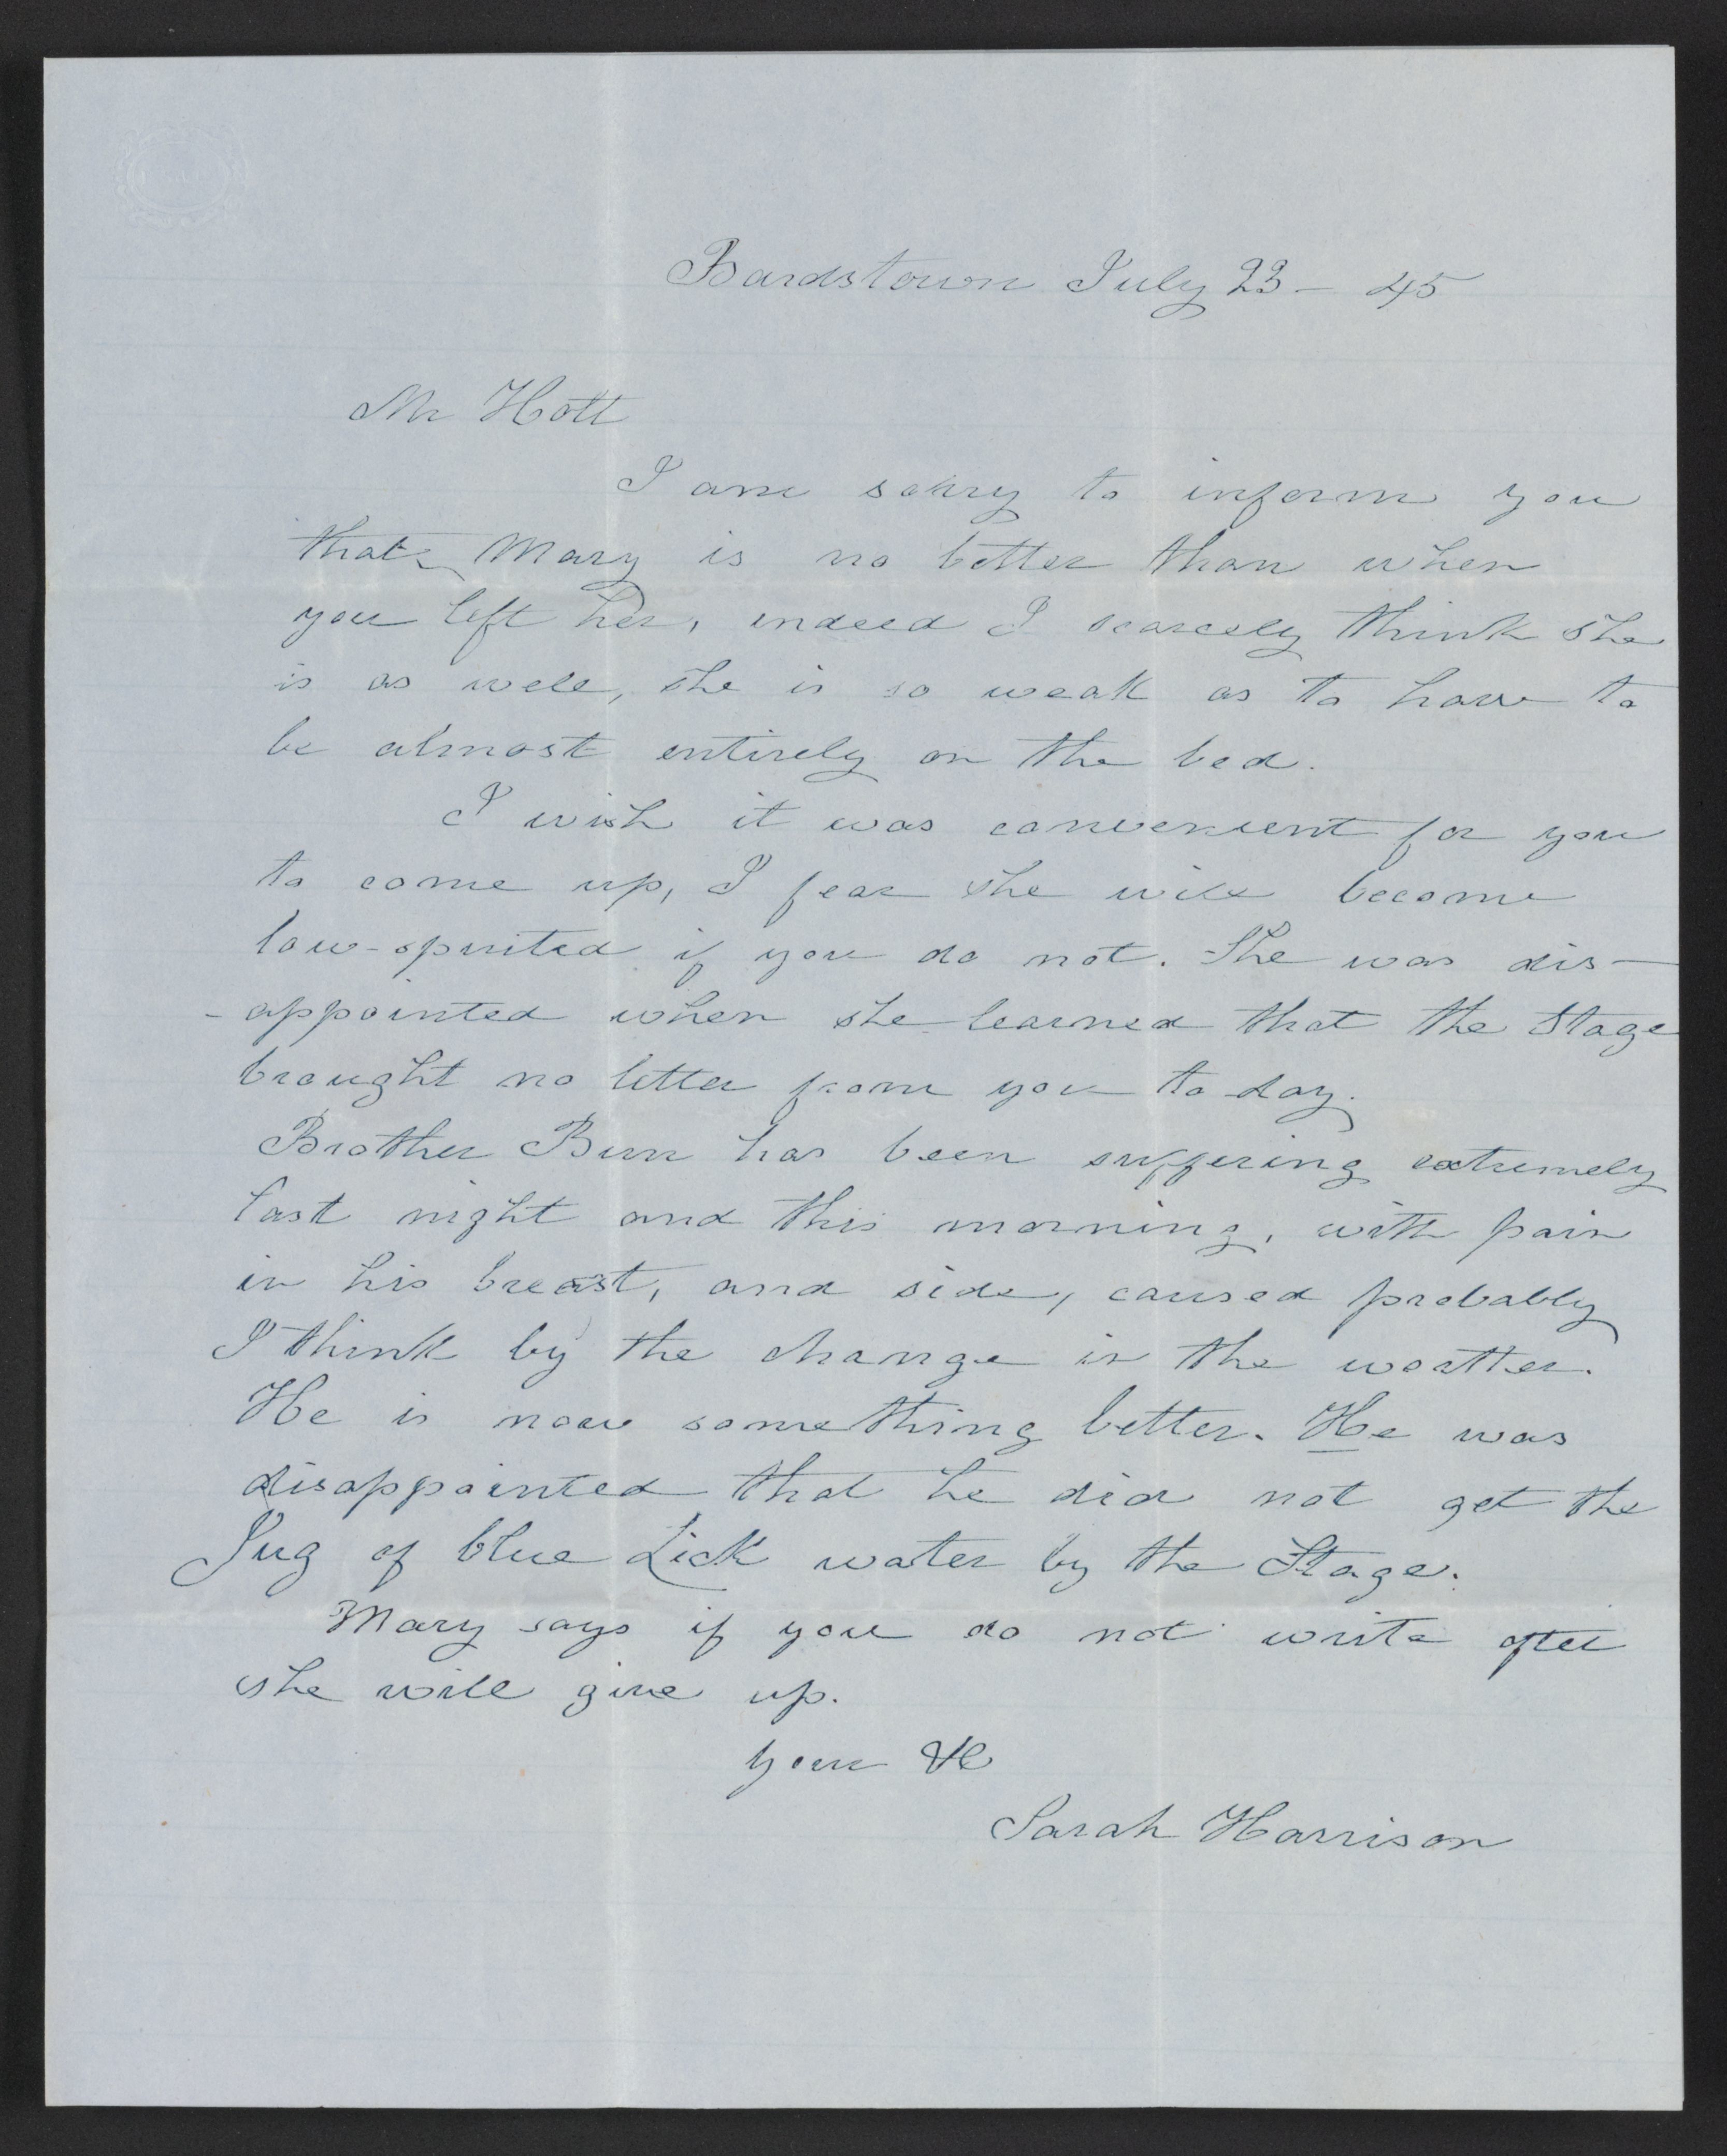 Bardstown July 23 - 45
Mr Holt
I am sorry to inform you
that Mary is no better than when
you left her, indeed I scarcely think she
is as well, she is so weak as to have to
be almost entirely on the bed.
I wish it was convenient for you
to come up, I fear she will become
low-spirited if you do not. She was dis-
-appointed when she learned that the Stage
brought no letter from you to day.
Brother Burr has been suffering extremely
last night and this morning, with pain
in his breast, and side, caused probably
I think by the change in the weather.
He is now something better. He was
disappointed that he did not get the
Jug of blue Lick water by the Stage.
Mary says if you do not write
she will give up.
&c
Sarah Harrison